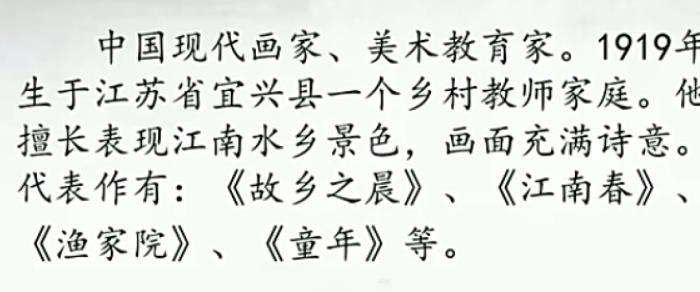 中国现代画家、美术教育家。1919年
生于江苏省宜兴县一个乡村教师家庭。他
擅长表现江南水乡景色，画面充满诗意。
代表作有：《故乡之晨》、《江南春》、
《渔家院》、《童年》等。